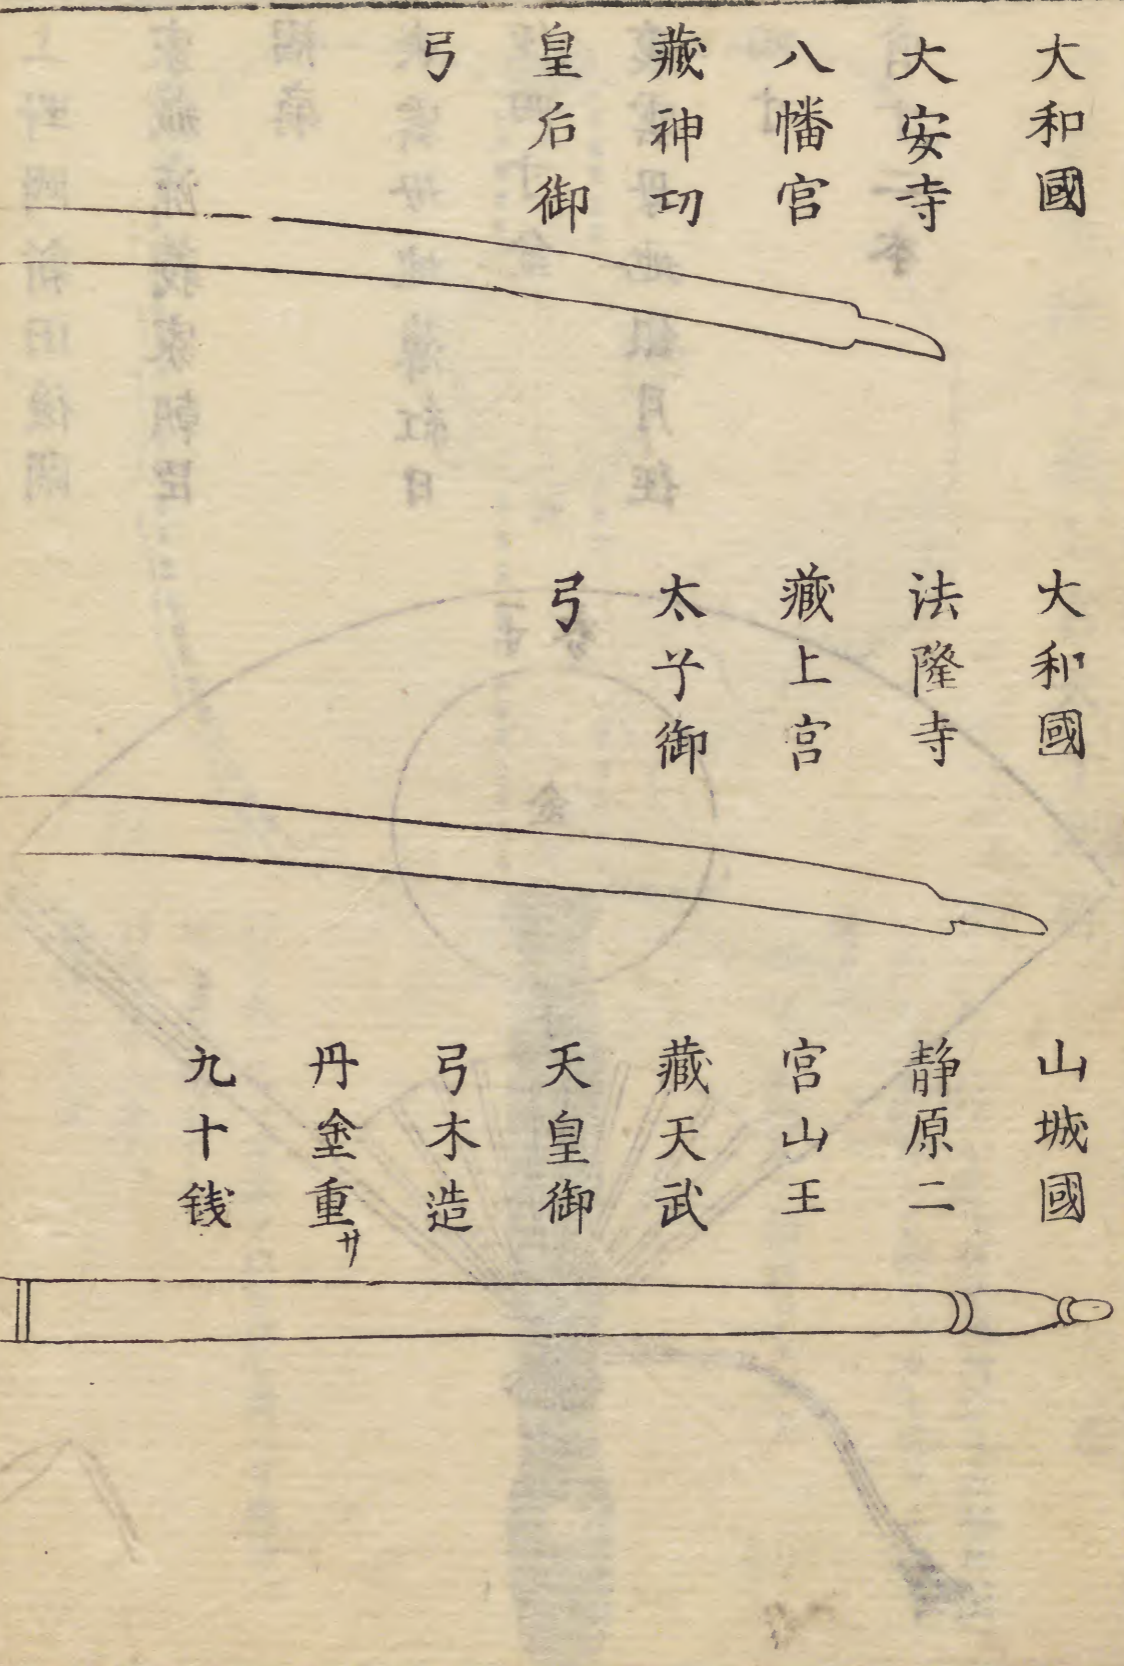 大和國
大安寺
八幡宮
藏神功
皇后御
弓
大和國
法隆寺
藏上宮
太子御
弓
山城國
静原二
宮山王
藏天武
天皇御
弓木造
丹金重サ
九十銭